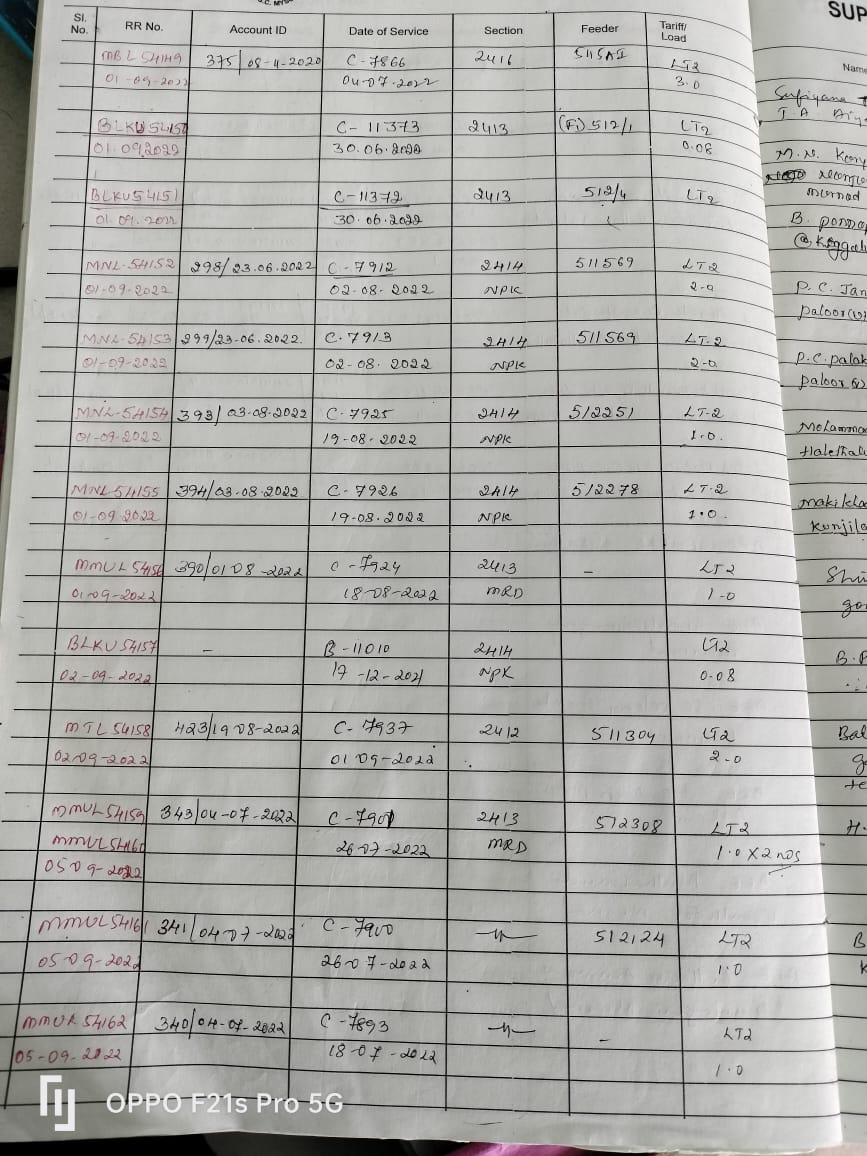 SUP
Sl. No. RR No. Account ID Date of Service Section Feeder Tariff/ Load
Name
MBL 54149 375/08-4-2020 C-7866 2416 LT2
01-09-2022 04-07-2022 3.0
BLKU 54150 C-11373 2413 (F) 512/1 LT2
01.09.2022 30.06.2022 0.08
BLKU 54151 C-11372 2413 512/4 LT2
01.09.2022 30.06.2022
MNL-54152 298/23.06.2022 C-7912 2414 511569 LT2
01-09-2022 02-08-2022 NPK 2-0
MNL-54153 299/23-06.2022. C-7913 2414 511569 LT-2
01-09-2022 02-08-2022 NPK 2-0
MNL-54154 393/03-08-2022 C-7925 2414 512251 LT-2
01-09-2022 19-08-2022 NPK 1.0.
MNL 54155 394/03-08-2022 C-7926 2414 512278 LT-2
01-09-2022 19-08.2022 NPK 1.0
MMUL 54156 390/01 08-2022 C-7924 2413 - LT2
01-09-2022 18-08-2022 MRD 1-0
BLKU 54157 - B-11010 2414 LT2
02-09-2022 17-12-2021 NPK 0-08
MTL 54158 423/19 08-2022 C-7937 2412 511304 LT2
02-09-2022 01 09-2022 2-0
MMUL 54159 343/04-07-2022 C-7901 2413 512308 LT2
MMUL 54160 26-07-2022 MRD 1.0 X 2 nos
05 09-2022
MMUL 54161 341/04-07-2022 C-7900 -"- 512124 LT2
05-09-2022 26-07-2022 1.0
MMUR 54162 340/04-07-2022 C-7893 -"- - LT2
05-09-2022 18-07-2022 1.0
Sufiyana
M.N.
B.
P.C. Jan
paloor(v)
P.C. palak
paloor
Shi
go
B.P
Bal
H.
B
K
OPPO F21s Pro 5G